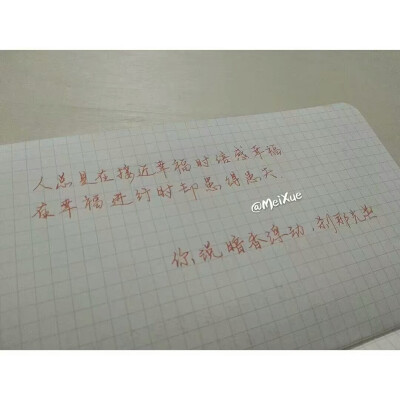 人总是在接近幸福时倍感幸福
在幸福进行时却患得患失
@MeiXue
你说暗香浮动,刹那光